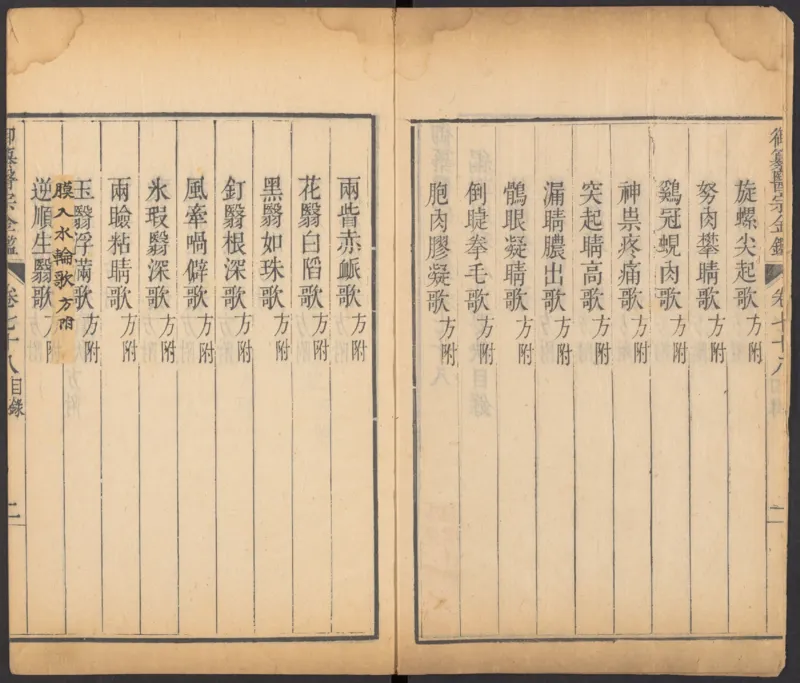 御纂醫宗金鑑 卷七十八目錄 二
旋螺尖起歌方附
努肉攀睛歌方附
鷄冠蜆肉歌方附
神祟疼痛歌方附
突起睛高歌方附
漏睛膿出歌方附
鶻眼凝睛歌方附
倒睫拳毛歌方附
胞肉膠凝歌方附
兩眥赤衇歌方附
花翳白䧟歌方附
黑翳如珠歌方附
釘翳根深歌方附
風牽喎僻歌方附
氷瑕翳深歌方附
兩瞼粘睛歌方附
玉翳浮滿歌方附
膜入水輪歌方附
逆順生翳歌方附
御纂醫宗金鑑 卷七十八目錄 二